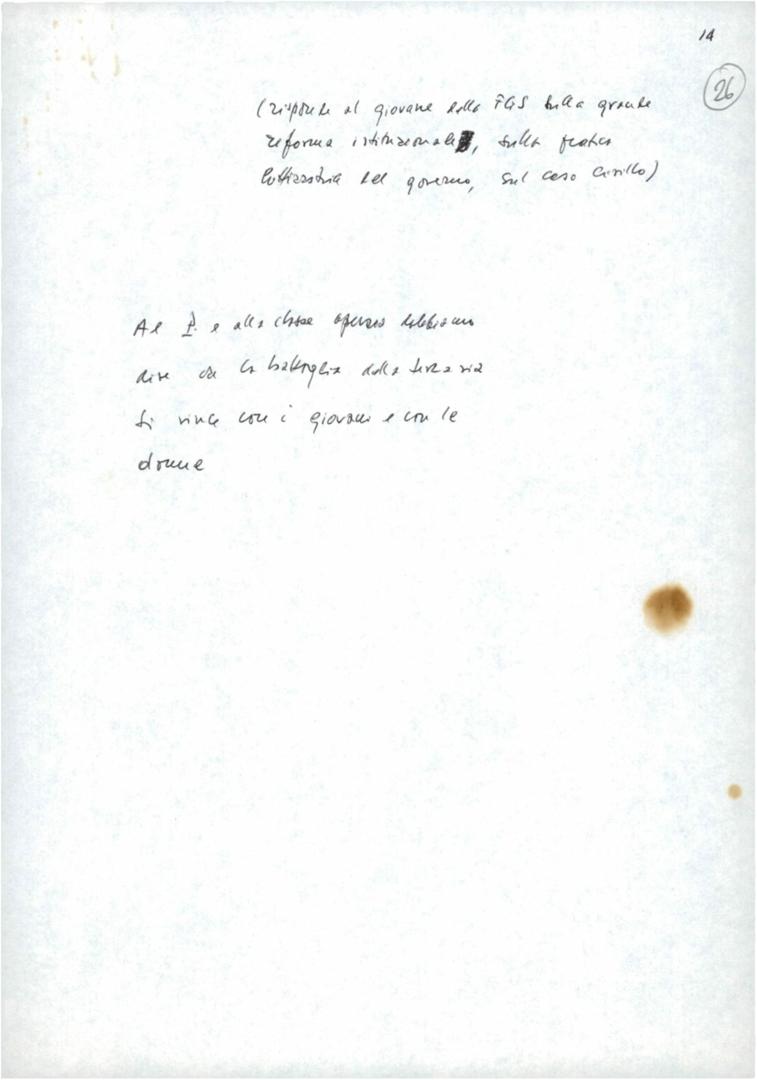 14
26
(risponde al giovane della FGS sulla grande
riforma istituzionale, sulla pratica
lottizzatrice del governo, sul caso Cirillo)
Al P. e alla classe operaia dobbiamo
dire che la battaglia della terza via
si vince con i giovani e con le
donne